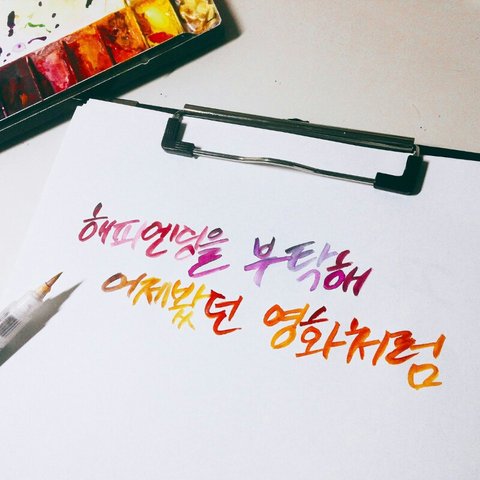 해피엔딩을 부탁해
어제봤던 영화처럼